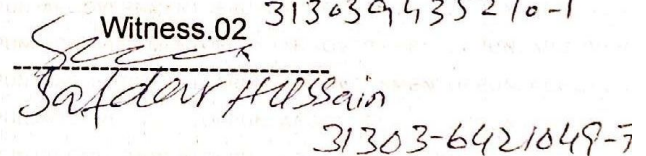 Witness.02 313039435210-1
Safdar Hussain
31303-6421049-7